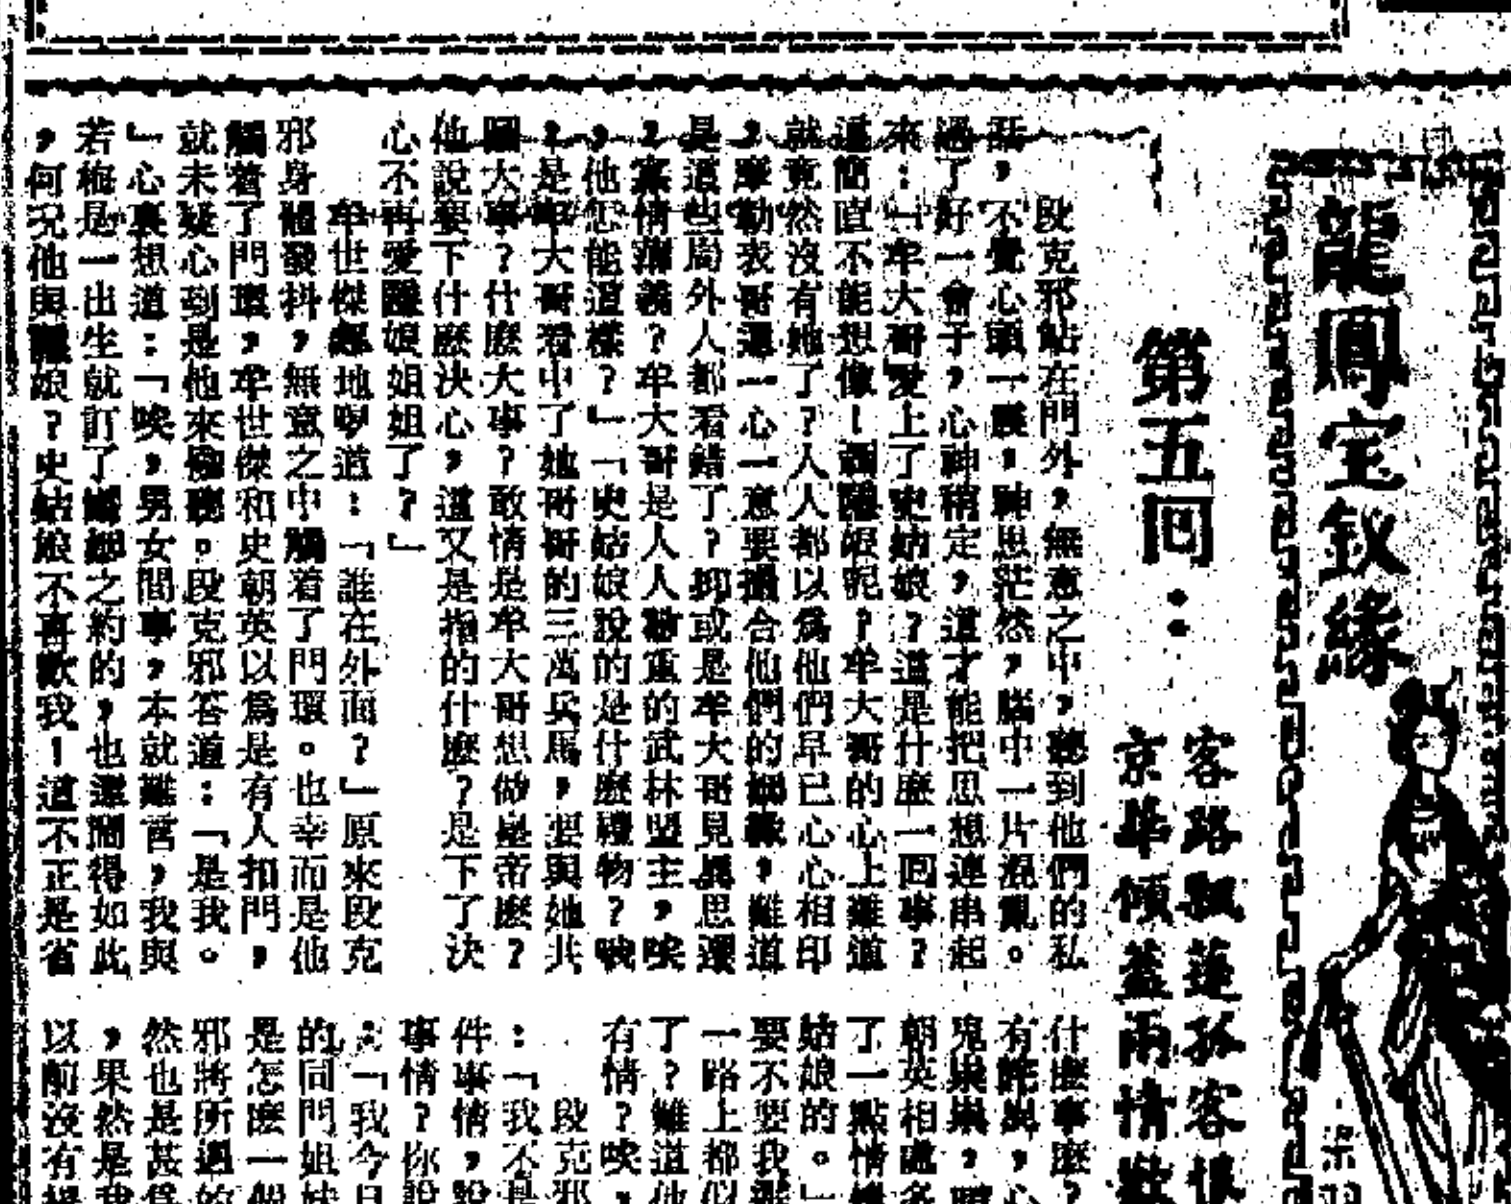 龍鳳宝釵緣
第五回：
客路飄蓬孤客恨
京華傾蓋兩情歡
段克邪站在門外，無意之中，聽到他們的私
話，不覺心頭一震，神思茫然，腦中一片混亂。
過了好一會子，心神稍定，這才能把思想連串起
來：「牟大哥愛上了史姑娘？這是什麼一回事？
這簡直不能想像！聶隱娘呢？牟大哥的心上難道
就竟然沒有她了？人人都以爲他們早已心心相印
，摩勒表哥還一心一意要撮合他們的姻緣，難道
是這些局外人都看錯了？抑或是牟大哥見異思遷
，寡情薄義？牟大哥是人人敬重的武林盟主，唉
，他怎能這樣？」「史姑娘說的是什麼禮物？哦
，是牟大哥看中了她哥哥的三萬兵馬，要與她共
圖大事？什麼大事？敢情是牟大哥想做皇帝麼？
他說要下什麼決心，這又是指的什麼？是下了決
心不再愛隱娘姐姐了？」
牟世傑地喝道：「誰在外面？」原來段克
邪身體發抖，無意之中觸着了門環。也幸而是他
觸着了門環，牟世傑和史朝英以爲是有人扣門，
就未疑心到是他來偷聽。段克邪答道：「是我。
」心裏想道：「唉，男女間事，本就難言，我與
若梅是一出生就訂了鴛鴦之約的，也還鬧得如此
，何況他與隱娘？史姑娘不再歡我！這不正是省
什麼事麼？
有，心
鬼祟祟，
朝英相處多
了一點情
姑娘的。」
要不要我
一路上都似
了？難道他
有情？唉，
段克邪
：「我不是
件事情，說
事情？你說
：「我今日
的同門姐妹
是怎麼一個
邪將所遇的
然也是甚爲
，果然是我
以前沒有
梁